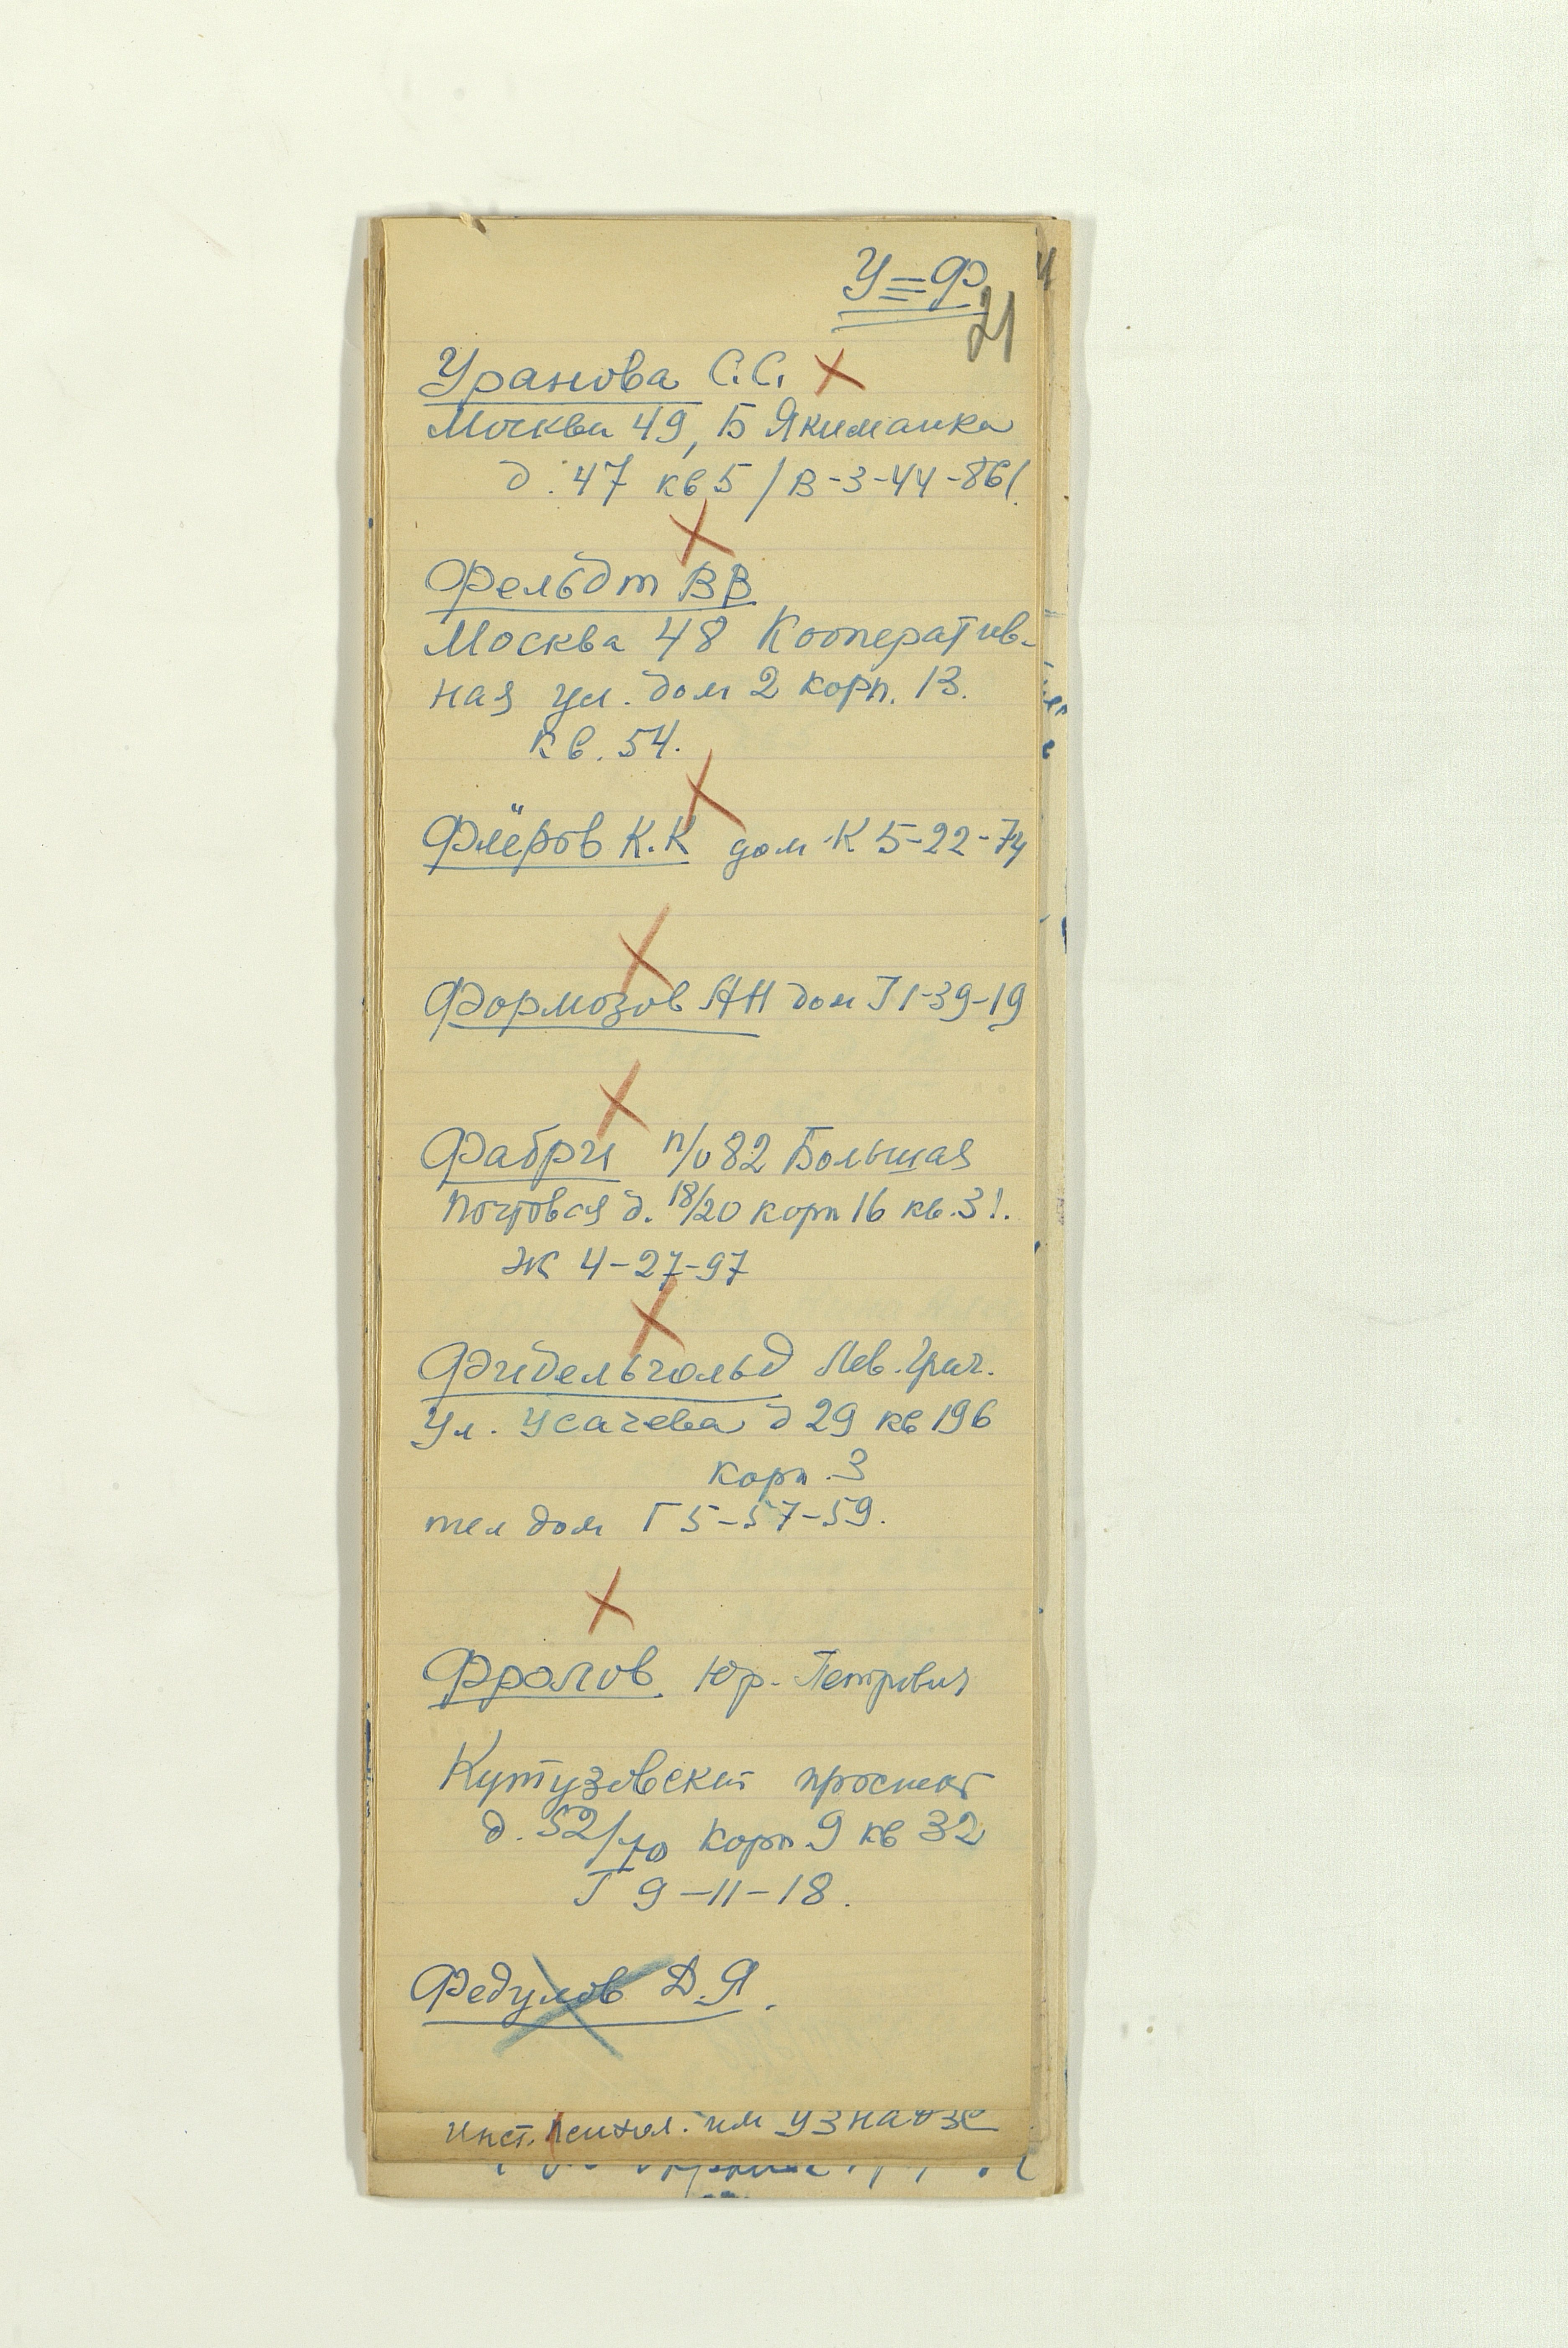 У=Ф
21
Уранова С.С.
Москва 49, Б Якиманка
д. 47 кв 5 /В-3-44-86/.
Фельдт ВВ
Москва 48 Кооператив-
ная ул. дом 2 корп. 13.
кв. 54.
Флёров К.К дом К 5-22-74
Формозов АН дом Г 1-39-19
Фабри п/о 82 Большая
Почтовая д. 18/20 корп 16 кв. 31.
Ж 4-27-97
Фидельгольд Лев. Григ.
Ул. Усачева д 29 кв 196
корп. 3
тел дом Г 5-57-59.
Фролов Юр. Петрович
Кутузовский проспект
д. 52/ корп 9 кв 32
Г 9-11-18.
Федулов Д.Я.
Инст. Психол. им УЗНАДЗЕ